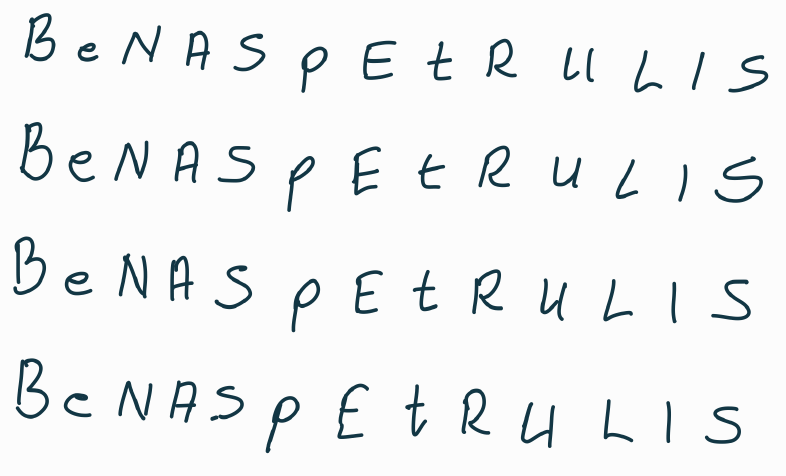 BeNAS pEtRULIS
BeNAS pEtRULIS
BeNAS pEtRULIS
BeNAS pEtRULIS